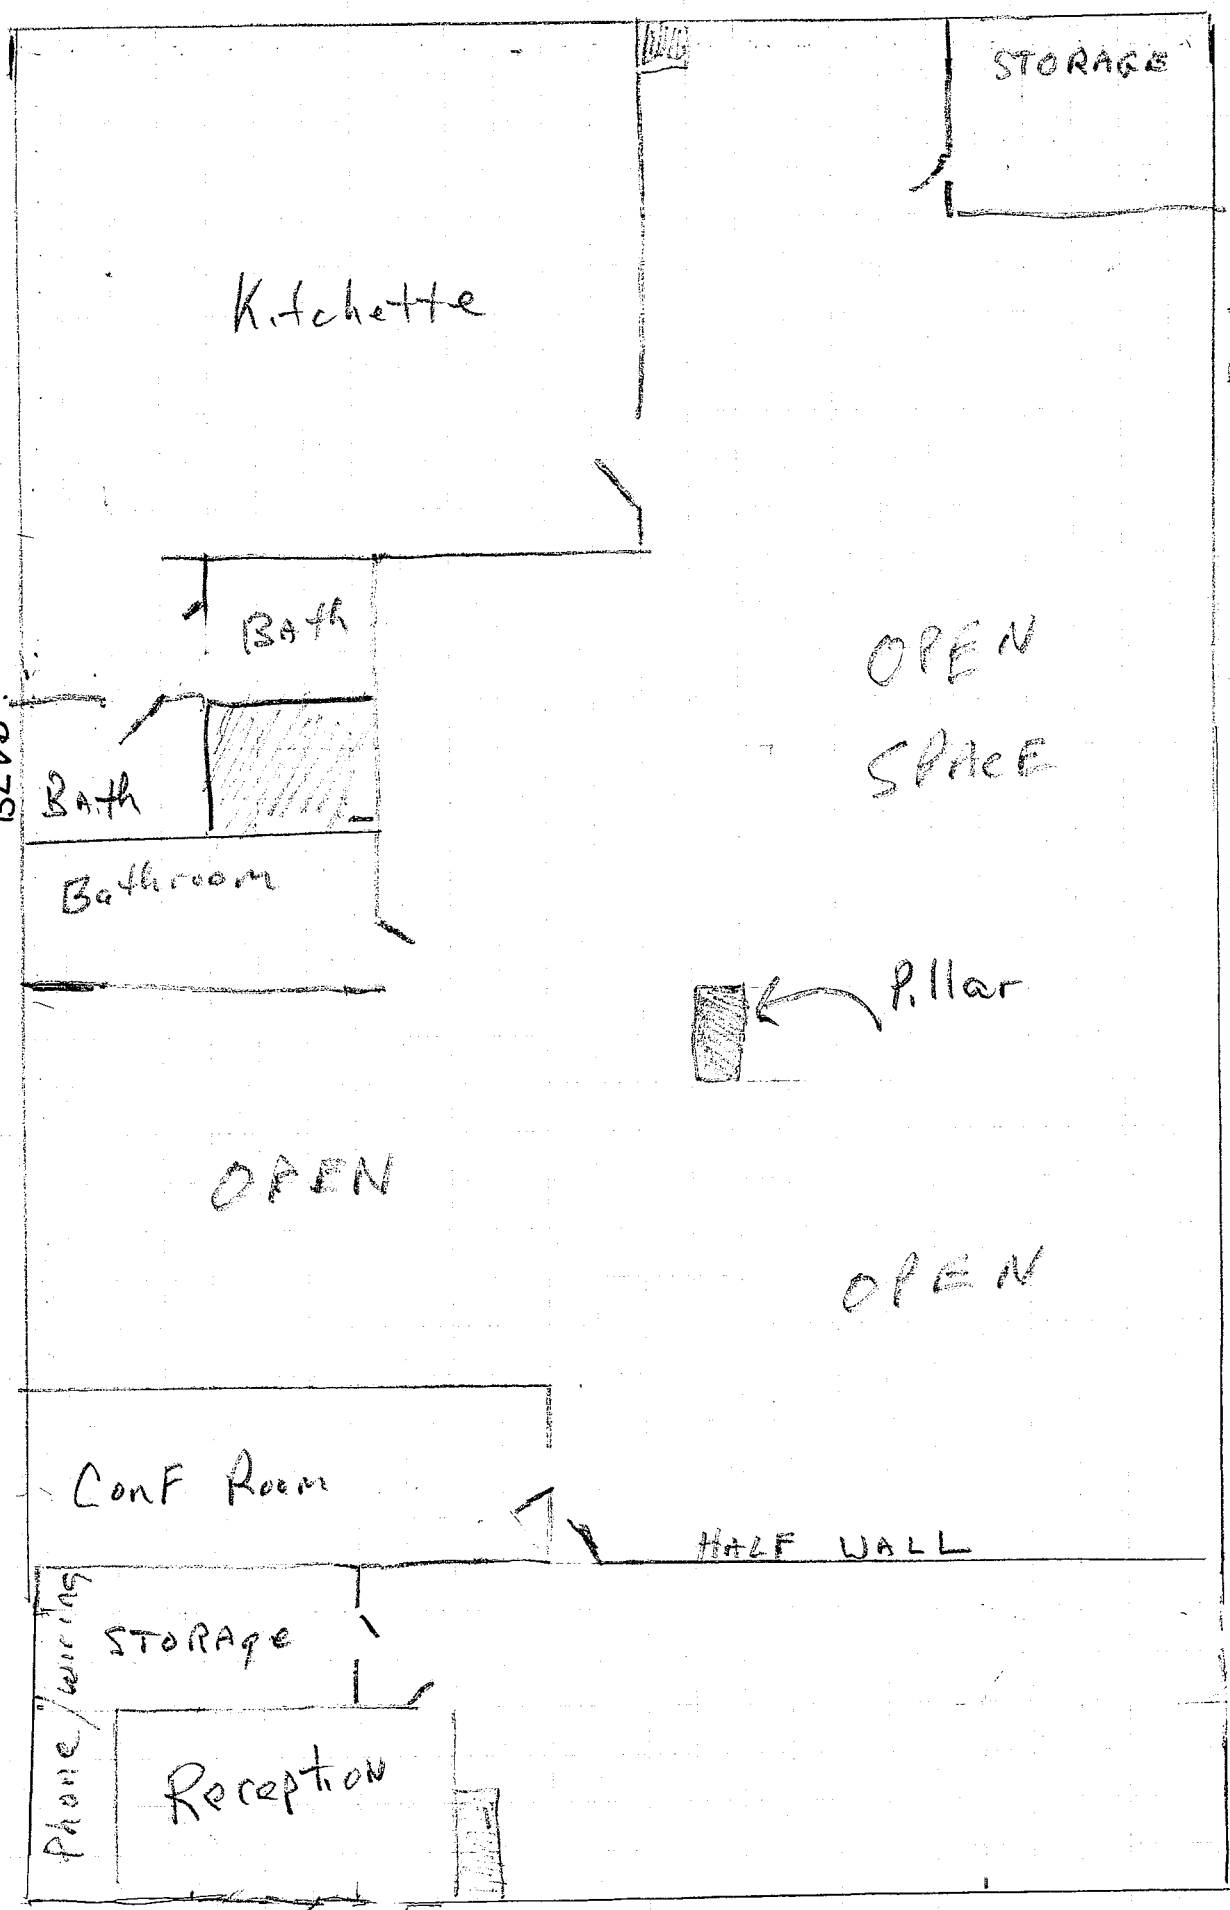 STORAGE
Kitchette
BAth
OPEN
SPACE
BLVD.
BAth
Bathroom
Pillar
OPEN
OPEN
Conf Room
HALF WALL
Phone/wiring
STORAge
Reception